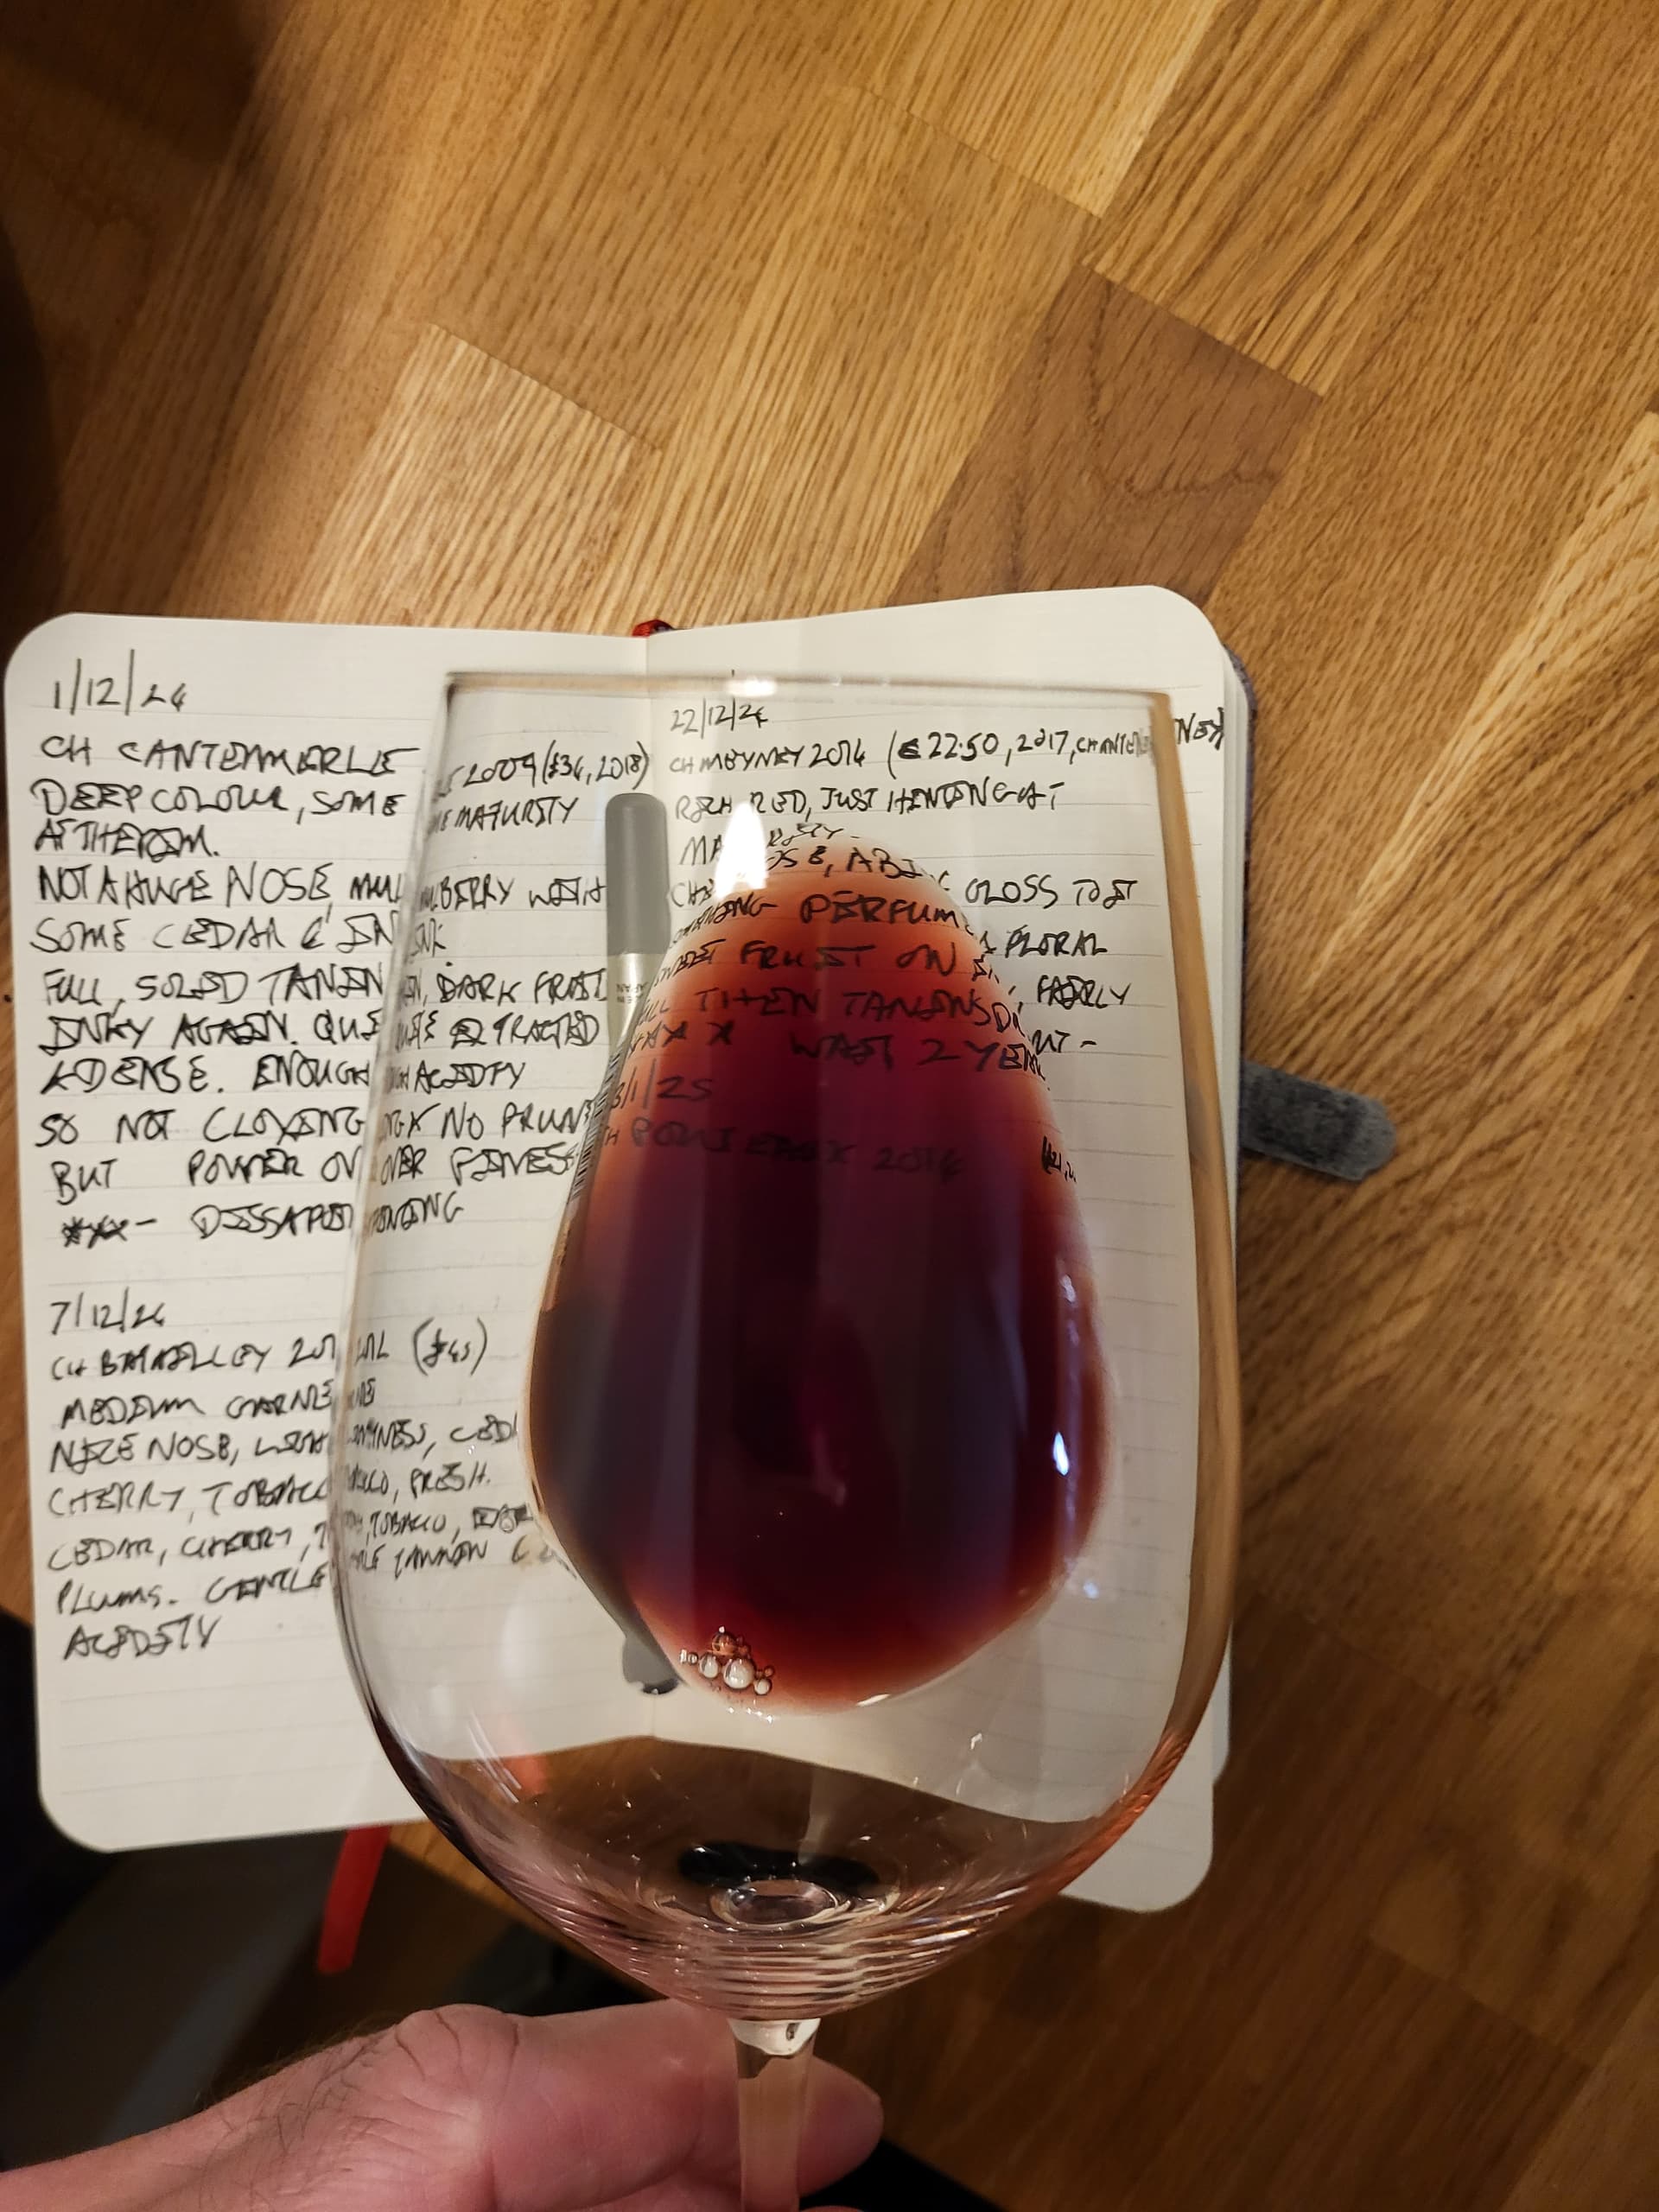 1/12/24
CH CANTEMERLE 2009 (£34, 2018)
DEEP COLOUR, SOME MATURITY
AT THE RIM.
NOT A HUGE NOSE MULBERRY WITH
SOME CEDAR & INK.
FULL, SOLID TANIN, DARK FRUIT
INKY AGAIN. QUITE EXTRACTED
& DENSE. ENOUGH ACIDITY
SO NOT CLOYING & NO PRUNE
BUT POWER OVER FINESSE
DISSAPOINTING
7/12/24
CH (£45)
MEDIUM GARNET
NICE NOSE, CEDAR
CHERRY, TOBACCO, FRESH.
CEDAR, CHERRY, TOBACCO,
PLUMS. GENTLE TANNIN &
ACIDITY
22/12/24
CH MEYNEY 2014 (£22.50, 2017,
RICH RED, JUST HINTING AT
MATURITY.
NOSE, A BIG GLOSS TO IT
PERFUME FLORAL
SWEET FRUIT ON FAIRLY
FULL THEN TANINS
WAIT 2 YEARS
/1/25
2014